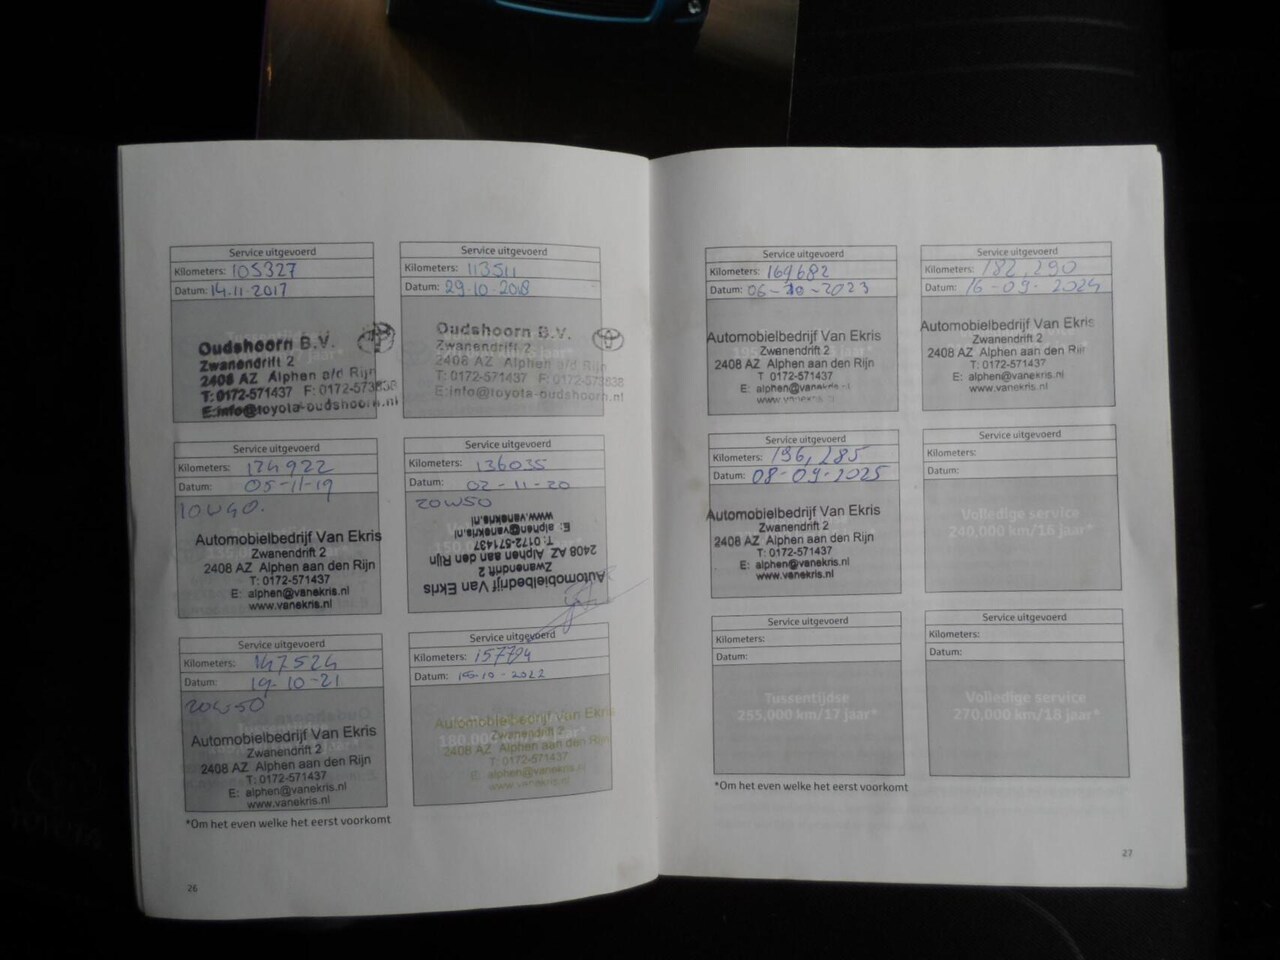 Service uitgevoerd
Kilometers: 105327
Datum: 14.11.2017
Oudshoorn B.V.
Zwanendrift 2
2408 AZ Alphen a/d Rijn
T: 0172-571437 F: 0172-573838
E:info@toyota-oudshoorn.nl
Service uitgevoerd
Kilometers: 113511
Datum: 29.10.2018
Oudshoorn B.V.
Zwanendrift 2
2408 AZ Alphen a/d Rijn
T: 0172-571437 F: 0172-573838
E:info@toyota-oudshoorn.nl
Service uitgevoerd
Kilometers: 124922
Datum: 05-11-19
10W40.
Automobielbedrijf Van Ekris
Zwanendrift 2
2408 AZ Alphen aan den Rijn
T: 0172-571437
E: alphen@vanekris.nl
www.vanekris.nl
Service uitgevoerd
Kilometers: 136035
Datum: 02-11-20
20W50
Automobielbedrijf Van Ekris
Zwanendrift 2
2408 AZ Alphen aan den Rijn
T: 0172-571437
E: alphen@vanekris.nl
www.vanekris.nl
Service uitgevoerd
Kilometers: 147524
Datum: 19-10-21
20W50
Automobielbedrijf Van Ekris
Zwanendrift 2
2408 AZ Alphen aan den Rijn
T: 0172-571437
E: alphen@vanekris.nl
www.vanekris.nl
Service uitgevoerd
Kilometers: 157794
Datum: -10-2022
Automobielbedrijf Van Ekris
Zwanendrift 2
180.000
2408 AZ Alphen aan den Rijn
T: 0172-571437
E: alphen@vanekris.nl
www.vanekris.nl
*Om het even welke het eerst voorkomt
26
Service uitgevoerd
Kilometers: 169682
Datum: 06-10-2023
Automobielbedrijf Van Ekris
Zwanendrift 2
2408 AZ Alphen aan den Rijn
T 0172-571437
E: alphen@vanekris.nl
Service uitgevoerd
Kilometers: 182,290
Datum: 16-09-2024
Automobielbedrijf Van Ekris
Zwanendrift 2
2408 AZ Alphen aan den Rijn
T: 0172-571437
E: alphen@vanekris.nl
www.vanekris.nl
Service uitgevoerd
Kilometers: 196,285
Datum: 08-09-2025
Automobielbedrijf Van Ekris
Zwanendrift 2
2408 AZ Alphen aan den Rijn
T: 0172-571437
E: alphen@vanekris.nl
www.vanekris.nl
Service uitgevoerd
Kilometers:
Datum:
Volledige service
240,000 km/16 jaar*
Service uitgevoerd
Kilometers:
Datum:
Tussentijdse
255,000 km/17 jaar*
Service uitgevoerd
Kilometers:
Datum:
Volledige service
270,000 km/18 jaar*
*Om het even welke het eerst voorkomt
27